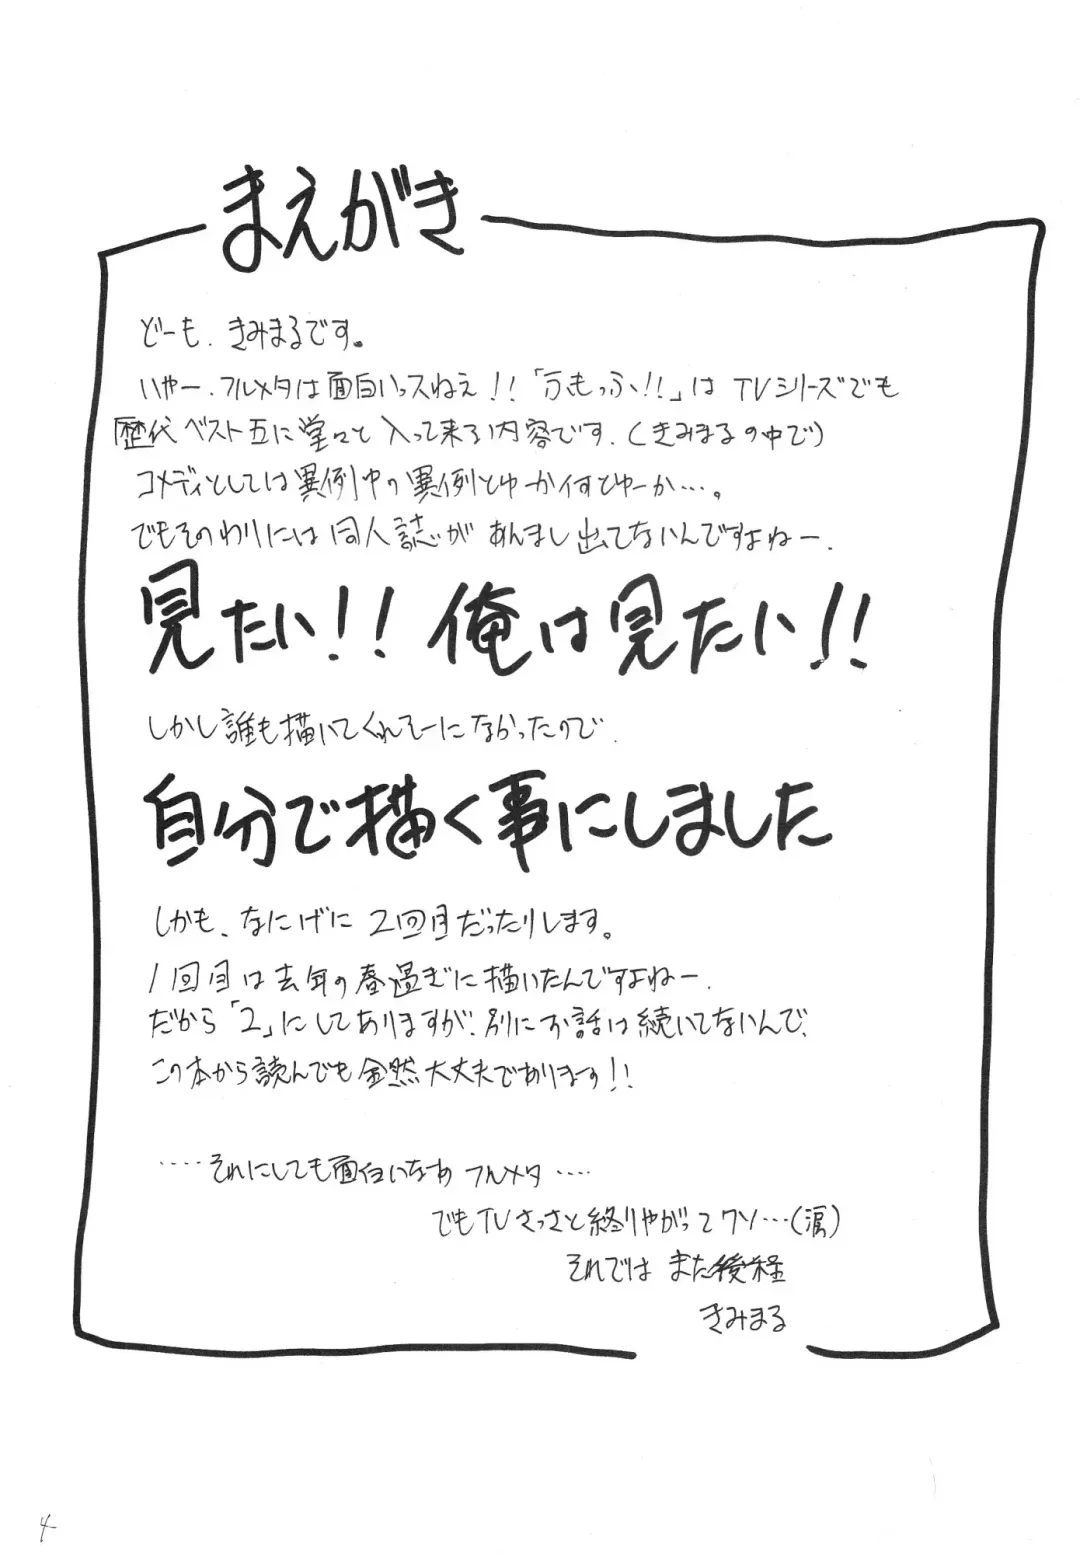 まえがき
どーも、きみまるです。
いやー、フルメタは面白いっスねえ!!「ふもっふ!!」はTVシリーズでも
歴代ベスト五に堂々と入って来る内容です、(きみまるの中で)
コメディとしては異例中の異例とゆーか何とゆーか…。
でもそのわりには同人誌があんまし出てないんですよねー、
見たい!!俺は見たい!!
しかし誰も描いてくれそーになかったので、
自分で描く事にしました
しかも、なにげに2回目だったりします。
1回目は去年の春過ぎに描いたんですよねー、
だから「2」にしてありますが、別にお話は続いてないんで、
この本から読んでも全然大丈夫であります!!
‥‥それにしても面白いなあ フルメタ‥‥
でもTVさっさと終りやがってクソ…(涙)
それでは また後程
きみまる
4